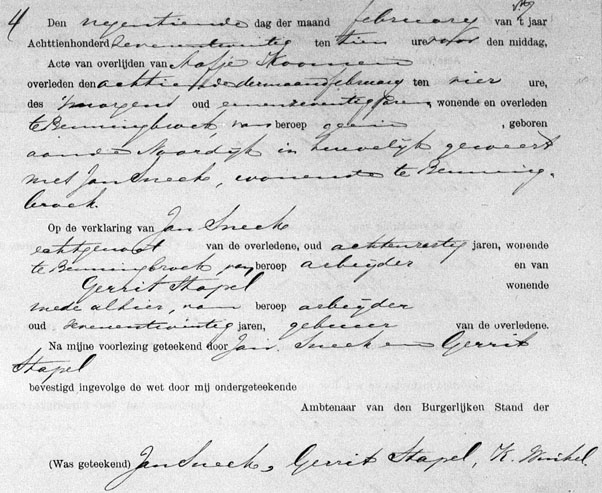 4 Den negentiende dag der maand februarij van 't jaar
Achttienhonderd zevenentwintig ten tien ure voor den middag,
Acte van overlijden van Aafje Koomen
overleden den achttiende der maand februarij ten vier ure,
des smorgens oud eenenzeventig jaren, wonende en overleden
te Benningbroek, van beroep geen, geboren
aan de Noordijk in huwelijk geweest
met Jan Sneek, wonende te Benning-
broek.
Op de verklaring van Jan Sneek
echtgenoot van de overledene, oud achtenzestig jaren, wonende
te Benningbroek, van beroep arbeijder en van
Gerrit Stapel wonende
mede alhier, van beroep arbeijder
oud zevenentwintig jaren, gebuur van de overledene.
Na mijne voorlezing geteekend door Jan Sneek en Gerrit
Stapel
bevestigd ingevolge de wet door mij ondergeteekende
Ambtenaar van den Burgerlijken Stand der
(Was geteekend) Jan Sneek, Gerrit Stapel, K. Winkel.